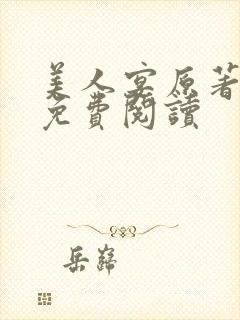 美人宴原著
免費閱讀
岳巋